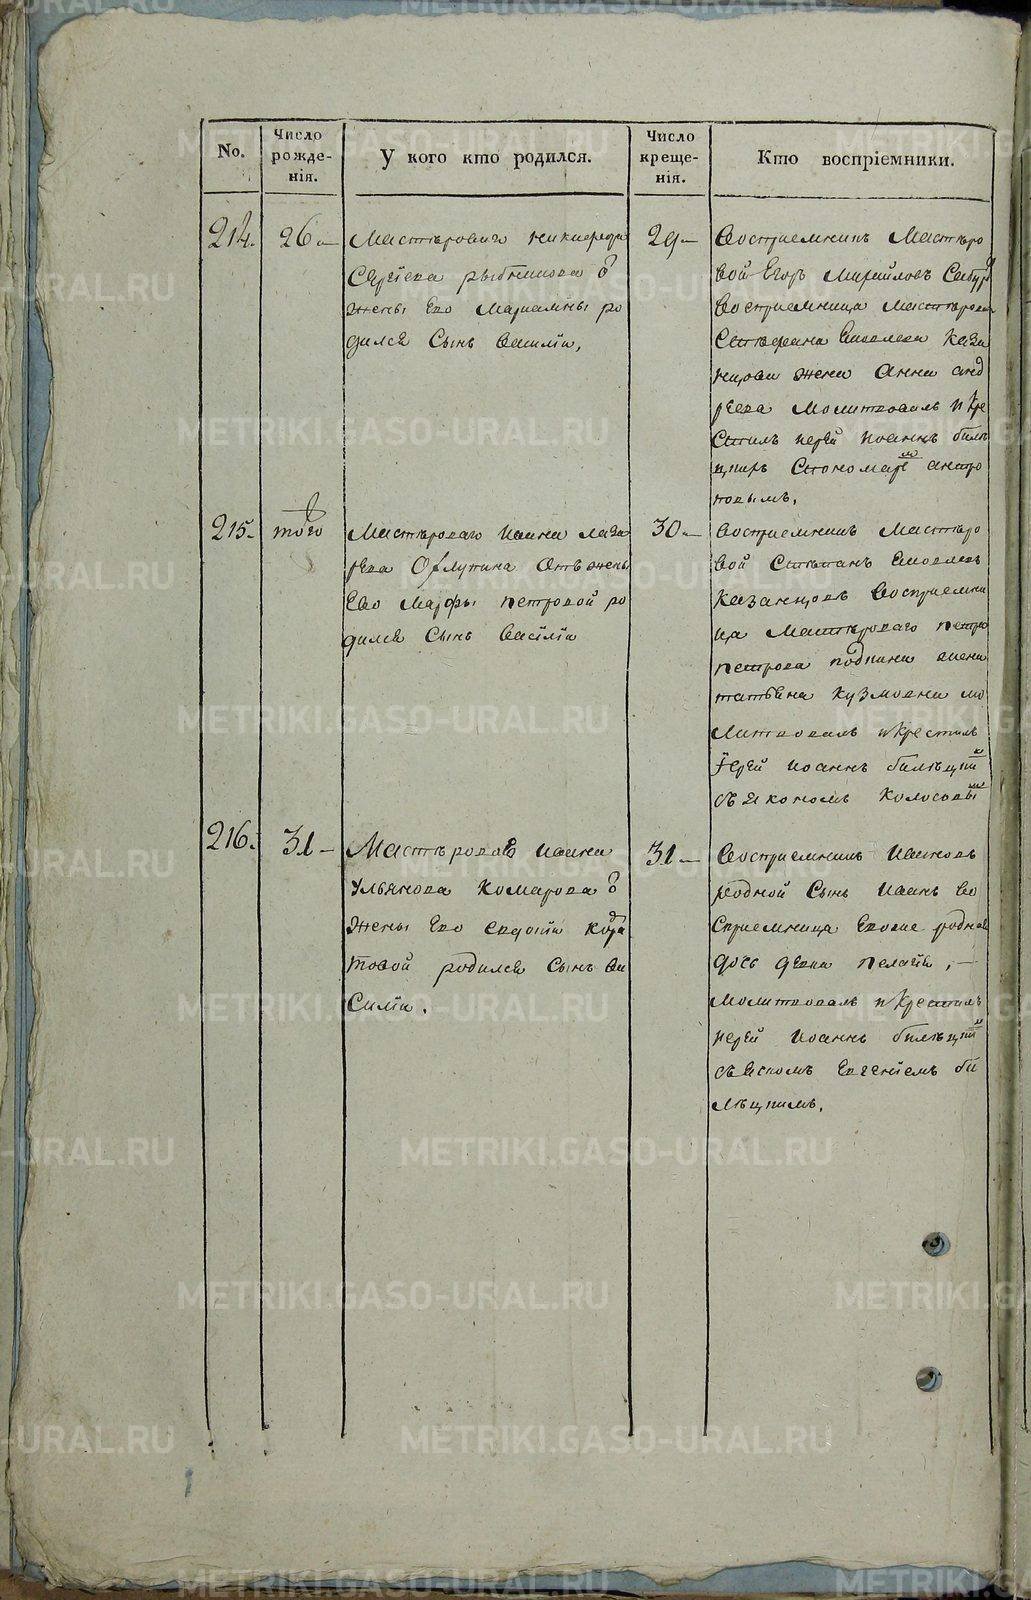 No.
Число рожде-нія.
У кого кто родился.
Число креще-нія.
Кто воспріемники.
214.
26 —
Мастѣроваго никифора
Сергѣева рыбникова ѿ
жены Ево Марианны ро
дился Сынъ василiи,
29 —
восприемникъ Мастѣро
вой Егоръ Михайловъ
восприемница мастѣроваго
Стефана Яковлева Каза
нцова жена анна анд
рѣева молитвовалъ и кре
стилъ иерей иоаннъ билѣ
цкиъ спономарем антро
повымъ,
215.
того
Мастѣроваго ивана лаза
рева Ѿ жены
Ево марфы петровой ро
дился Сынъ васiлiи
30 —
восприемникъ мастѣро
вой Стѣпанъ яковлевъ
казанцовъ восприемни
ца мастѣроваго петра
петрова жена
татьяна кузмовна мо
литвовалъ и крестилъ
iерей иоаннъ билѣцкий
съ дьякономъ колосовым
216.
31 —
Мастѣроваго ивана
ульянова комарова ѿ
жены Ево евдокiи кодра
товой родился Сынъ ва
силiи.
31 —
восприемникъ ивановъ
родной Сынъ иванъ во
сприемница Евоже родная
дочь девка пелагiя, —
молитвовалъ и крестилъ
иерей иоаннъ билѣцкий
Евгенiемъ би
лѣцкимъ,
METRIKI.GASO-URAL.RU